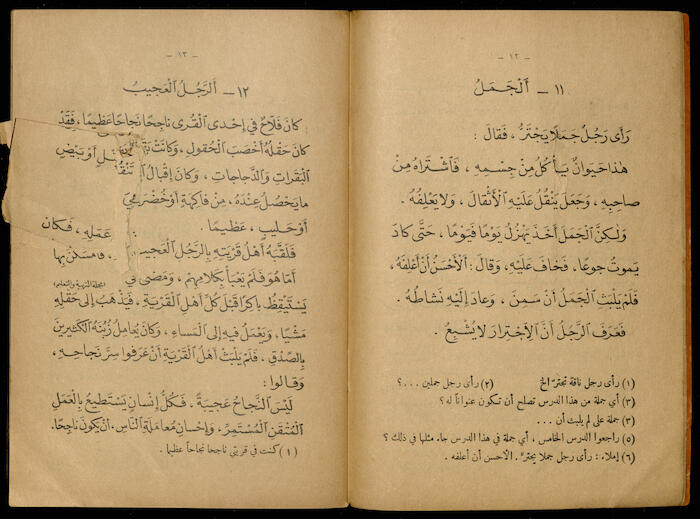 - ١٢ -
١١ - اَلْجَمَلُ
رَأَى رَجُلٌ جَمَلًا يَجْتَرُّ ، فَقَالَ :
هٰذَا حَيَوَانٌ يَأْكُلُ مِنْ جِسْمِهِ ، فَاشْتَرَاهُ مِنْ
صَاحِبِهِ ، وَجَعَلَ يَنْقُلُ عَلَيْهِ الْأَثْقَالَ ، وَلَا يَعْلِفُهُ .
وَلٰكِنَّ الْجَمَلَ أَخَذَ يَهْزُلُ يَوْمًا فَيَوْمًا ، حَتَّى كَادَ
يَمُوتُ جُوعًا . فَخَافَ عَلَيْهِ ، وَقَالَ : اَلْأَحْسَنُ أَنْ أَعْلِفَهُ ،
فَلَمْ يَلْبَثِ الْجَمَلُ أَنْ سَمِنَ ، وَعَادَ إِلَيْهِ نَشَاطُهُ .
فَعَرَفَ الرَّجُلُ أَنَّ الْاِجْتِرَارَ لَا يُشْبِعُ .
(١) رأى رجل ناقة تجترّ الخ (٢) رأى رجل جملين . . . ؟
(٣) أي جملة من هذا الدرس تصلح أن تكون عنواناً له ؟
(٣) جملة على لم يلبث أن . . .
(٥) راجعوا الدرس الخامس ، أي جملة في هذا الدرس جاء مثلها في ذلك ؟
(٦) إملاء : رأى رجل جملا يجترّ . الأحسن أن أعلفه .
- ١٣ -
١٢ - اَلرَّجُلُ الْعَجِيبُ
كَانَ فَلَّاحٌ فِي إِحْدَى الْقُرَى نَاجِحًا نَجَاحًا عَظِيمًا ، فَقَدْ
كَانَ حَقْلُهُ أَخْصَبَ الْحُقُولِ ، وَكَانَتْ أَوْ بَيْضِ
الْبَقَرَاتِ وَالدَّجَاجَاتِ ، وَكَانَ إِقْبَالُ
مَا يَحْصُلُ عِنْدَهُ ، مِنْ فَاكِهَةٍ أَوْ خُضَرٍ
أَوْ حَلِيبٍ ، عَظِيمًا . عَمَلِهِ ، فَكَانَ
فَلَقَّبَهُ أَهْلُ قَرْيَتِهِ بِالرَّجُلِ الْعَجِيبِ
أَمَّا هُوَ فَلَمْ يَعْبَأْ بِكَلَامِهِمْ ، وَمَضَى فِي
يَسْتَيْقِظُ بَاكِرًا قَبْلَ كُلِّ أَهْلِ الْقَرْيَةِ ، فَيَذْهَبُ إِلَى حَقْلِهِ
مَشْيًا ، وَيَعْمَلُ فِيهِ إِلَى الْمَسَاءِ ، وَكَانَ يُعَامِلُ زُبُنَهُ الْكَثِيرِينَ
بِالصِّدْقِ ، فَلَمْ يَلْبَثْ أَهْلُ الْقَرْيَةِ أَنْ عَرَفُوا سِرَّ نَجَاحِهِ ،
وَقَالُوا :
لَيْسَ النَّجَاحُ عَجِيبَةً . فَكُلُّ إِنْسَانٍ يَسْتَطِيعُ بِالْعَمَلِ
الْمُتْقَنِ الْمُسْتَمِرِّ ، وَإِحْسَانِ مُعَامَلَةِ النَّاسِ ، أَنْ يَكُونَ نَاجِحًا .
(١) كنت في قريتي ناجحا نجاحاً عظيما .